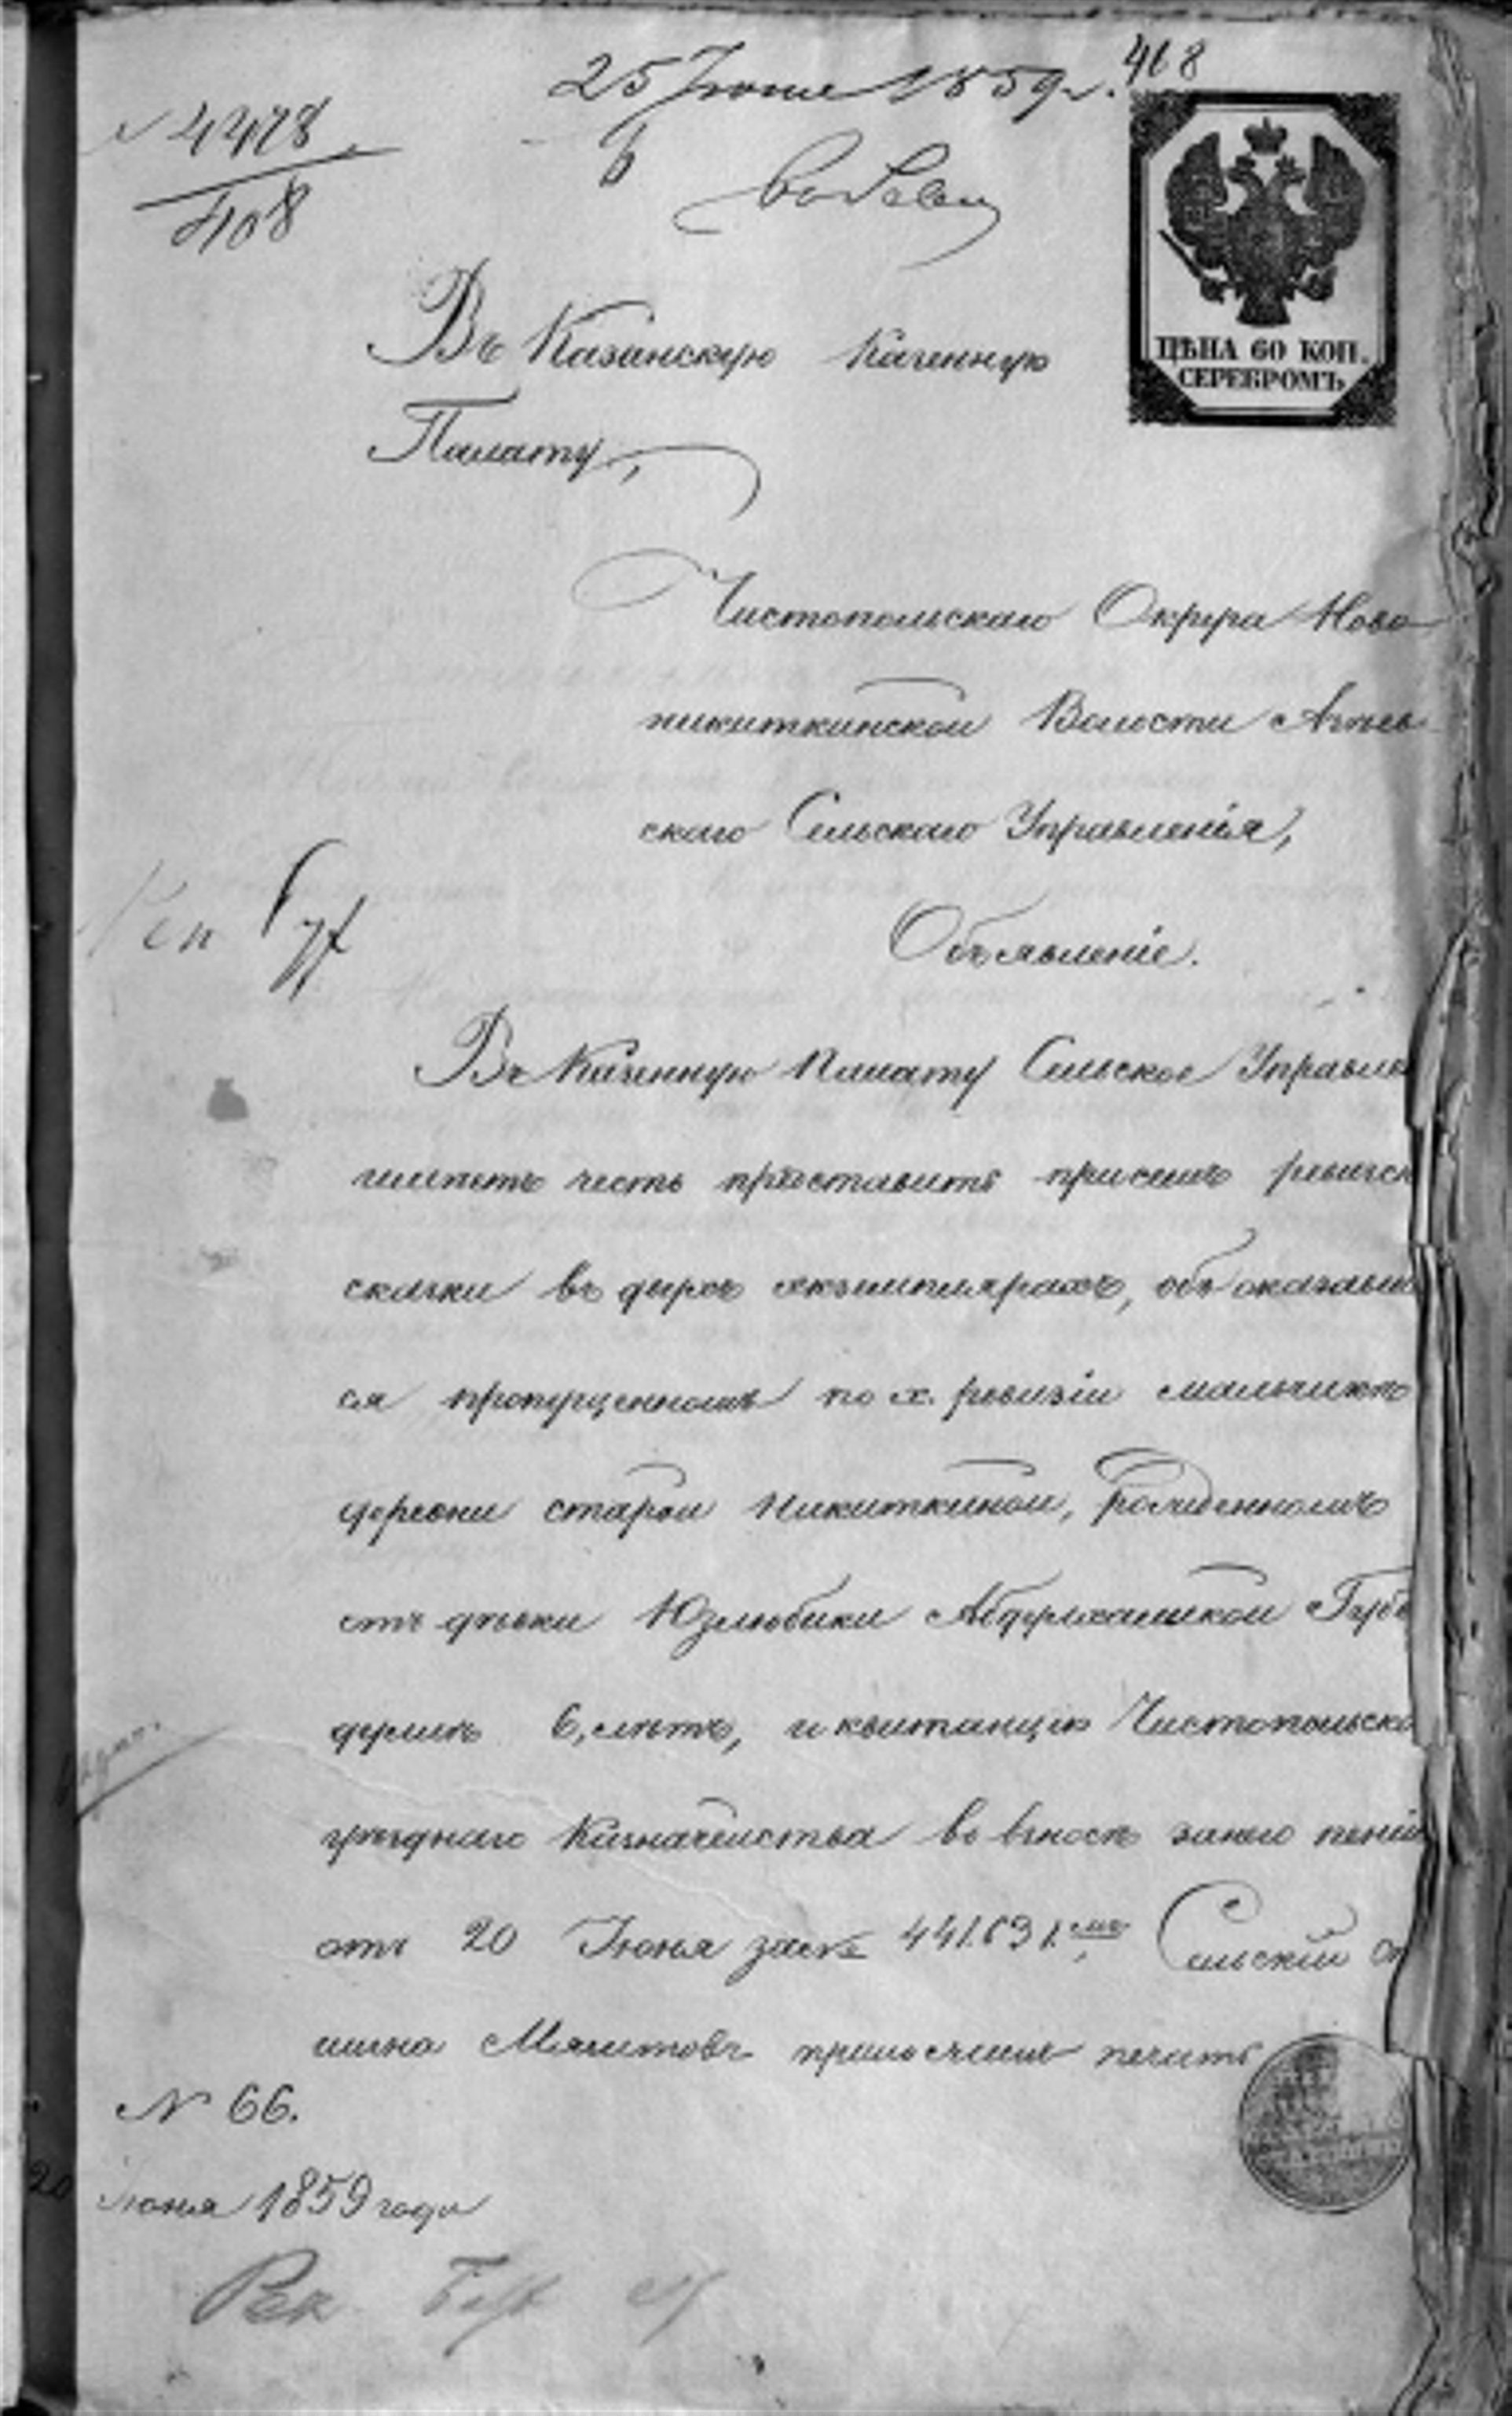 25 Іюня 1859 г. 468
№ 4478
408
ЦѢНА 60 КОП.
СЕРЕБРОМЪ
Въ Казанскую Казенную
Палату,
Чистопольскаго Округа Ново
никиткинской Волости Агиев
скаго Сельскаго Управленія,
Объявленіе.
Въ Казенную Палату Сельское Управле
имѣетъ честь предоставить при семъ ревизск
сказки въ двухъ экземплярахъ, объ оказавш
ся пропущенномъ по х. ревизіи мальчикѣ
деревни старой Никиткиной, рожденномъ
отъ дѣвки Юзлюбики Абдулхаликой Губе
дуллинъ 6, лѣтъ, и квитанцію Чистопольска
уѣзднаго Казначейства во взносѣ за него пеніи
отъ 20 Іюня за № 441631. Сельскій
шина Мяҷитовъ приложилъ печать
№ 66.
20 Іюня 1859 года